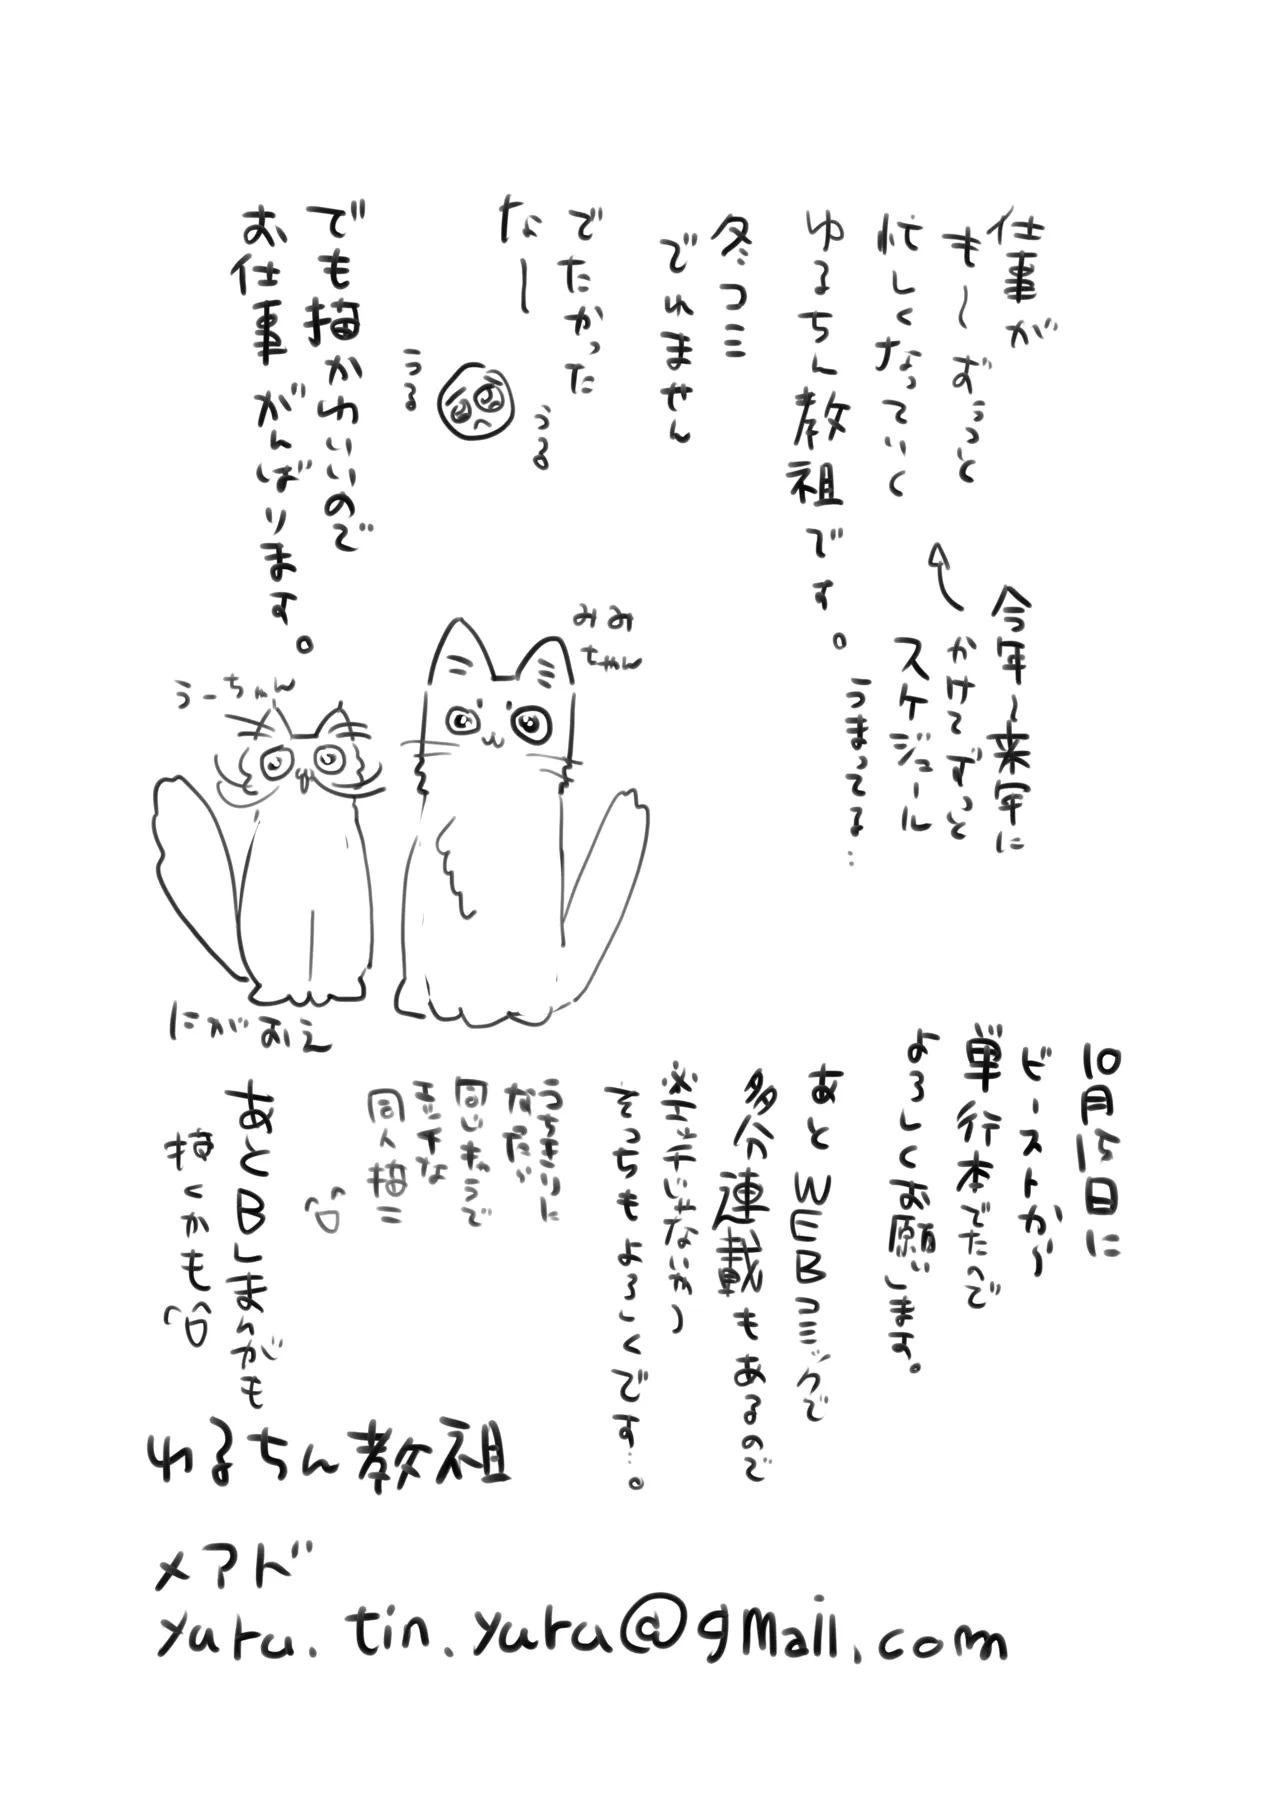 仕事が
も～ずっと
忙しくなっていく
ゆるちん教祖です。
今年～来年に
かけてずっと
スケジュール
うまってる…
冬コミ
でれません
でたかった
なー
うる
うる
でも描かわいいので
お仕事がんばります。
みみ
ちゃん
うーちゃん
にがおえ
10月15日に
ビーストから
単行本でたので
よろしくお願いします。
あとWEBコミックで
多分連載もあるので
※エッチじゃないやつ
そっちもよろしくです…。
うちきりに
なったら
同じキャラで
エッチな
同人描こ
あとBLまんがも
描くかも
ゆるちん教祖
メアド
yuru.tin.yuru@gmail.com